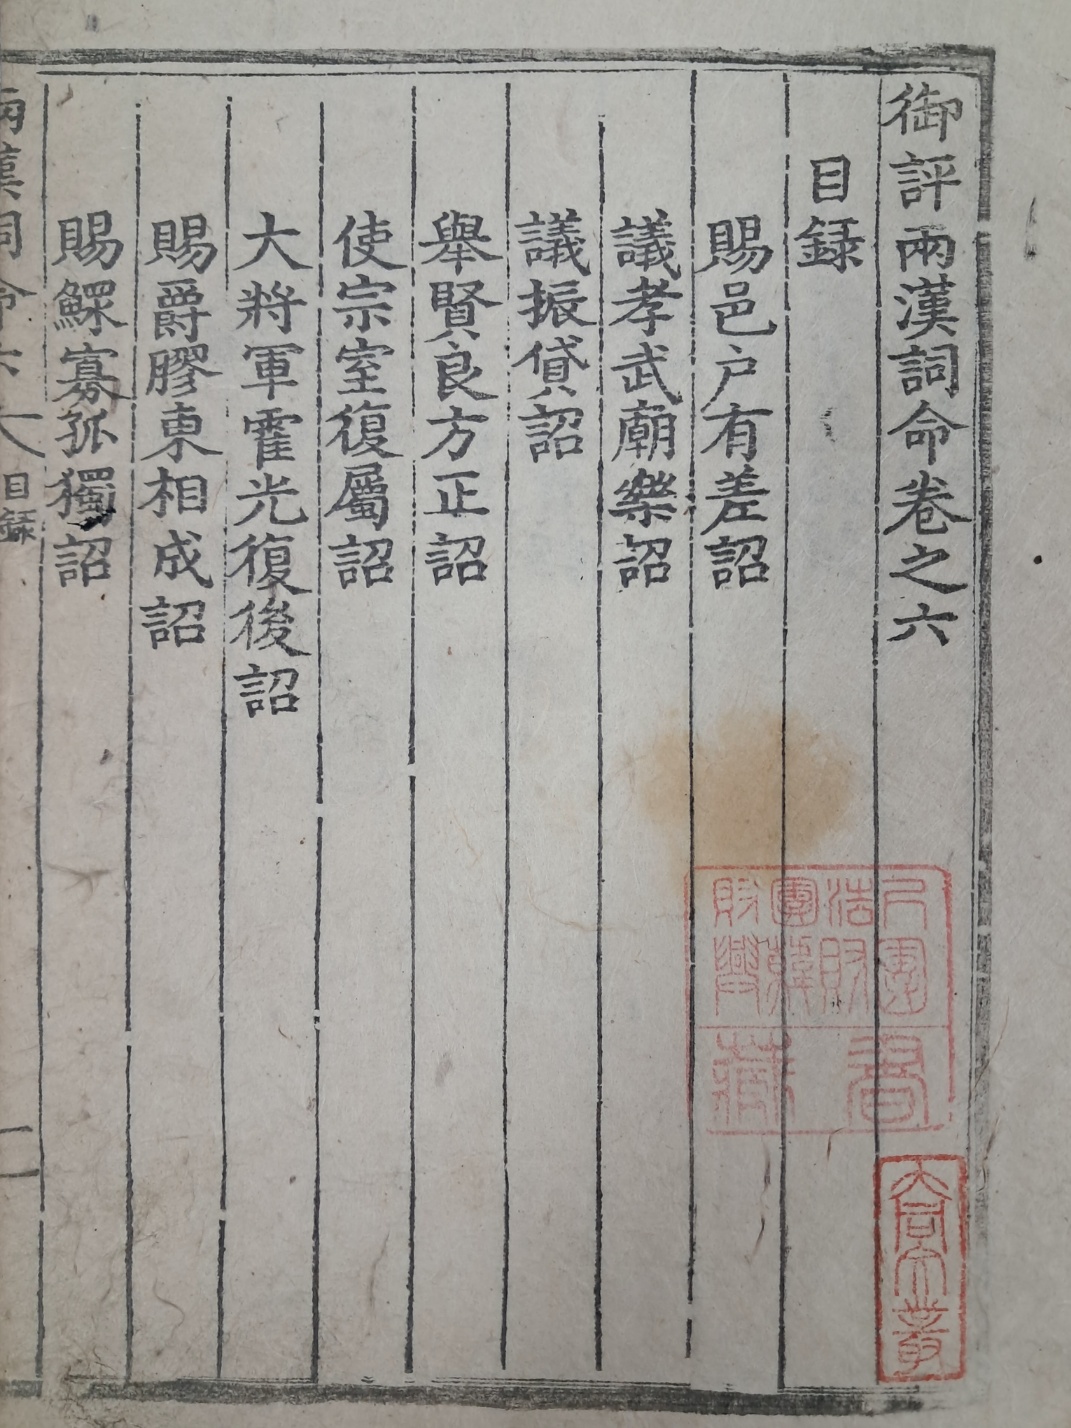 御評兩漢詞命卷之六
目録
賜邑户有差詔
議孝武廟樂詔
議振貸詔
舉賢良方正詔
使宗室復屬詔
大將軍霍光復後詔
賜爵膠東相成詔
賜鰥寡孤獨詔
兩漢詞命六
目録
一